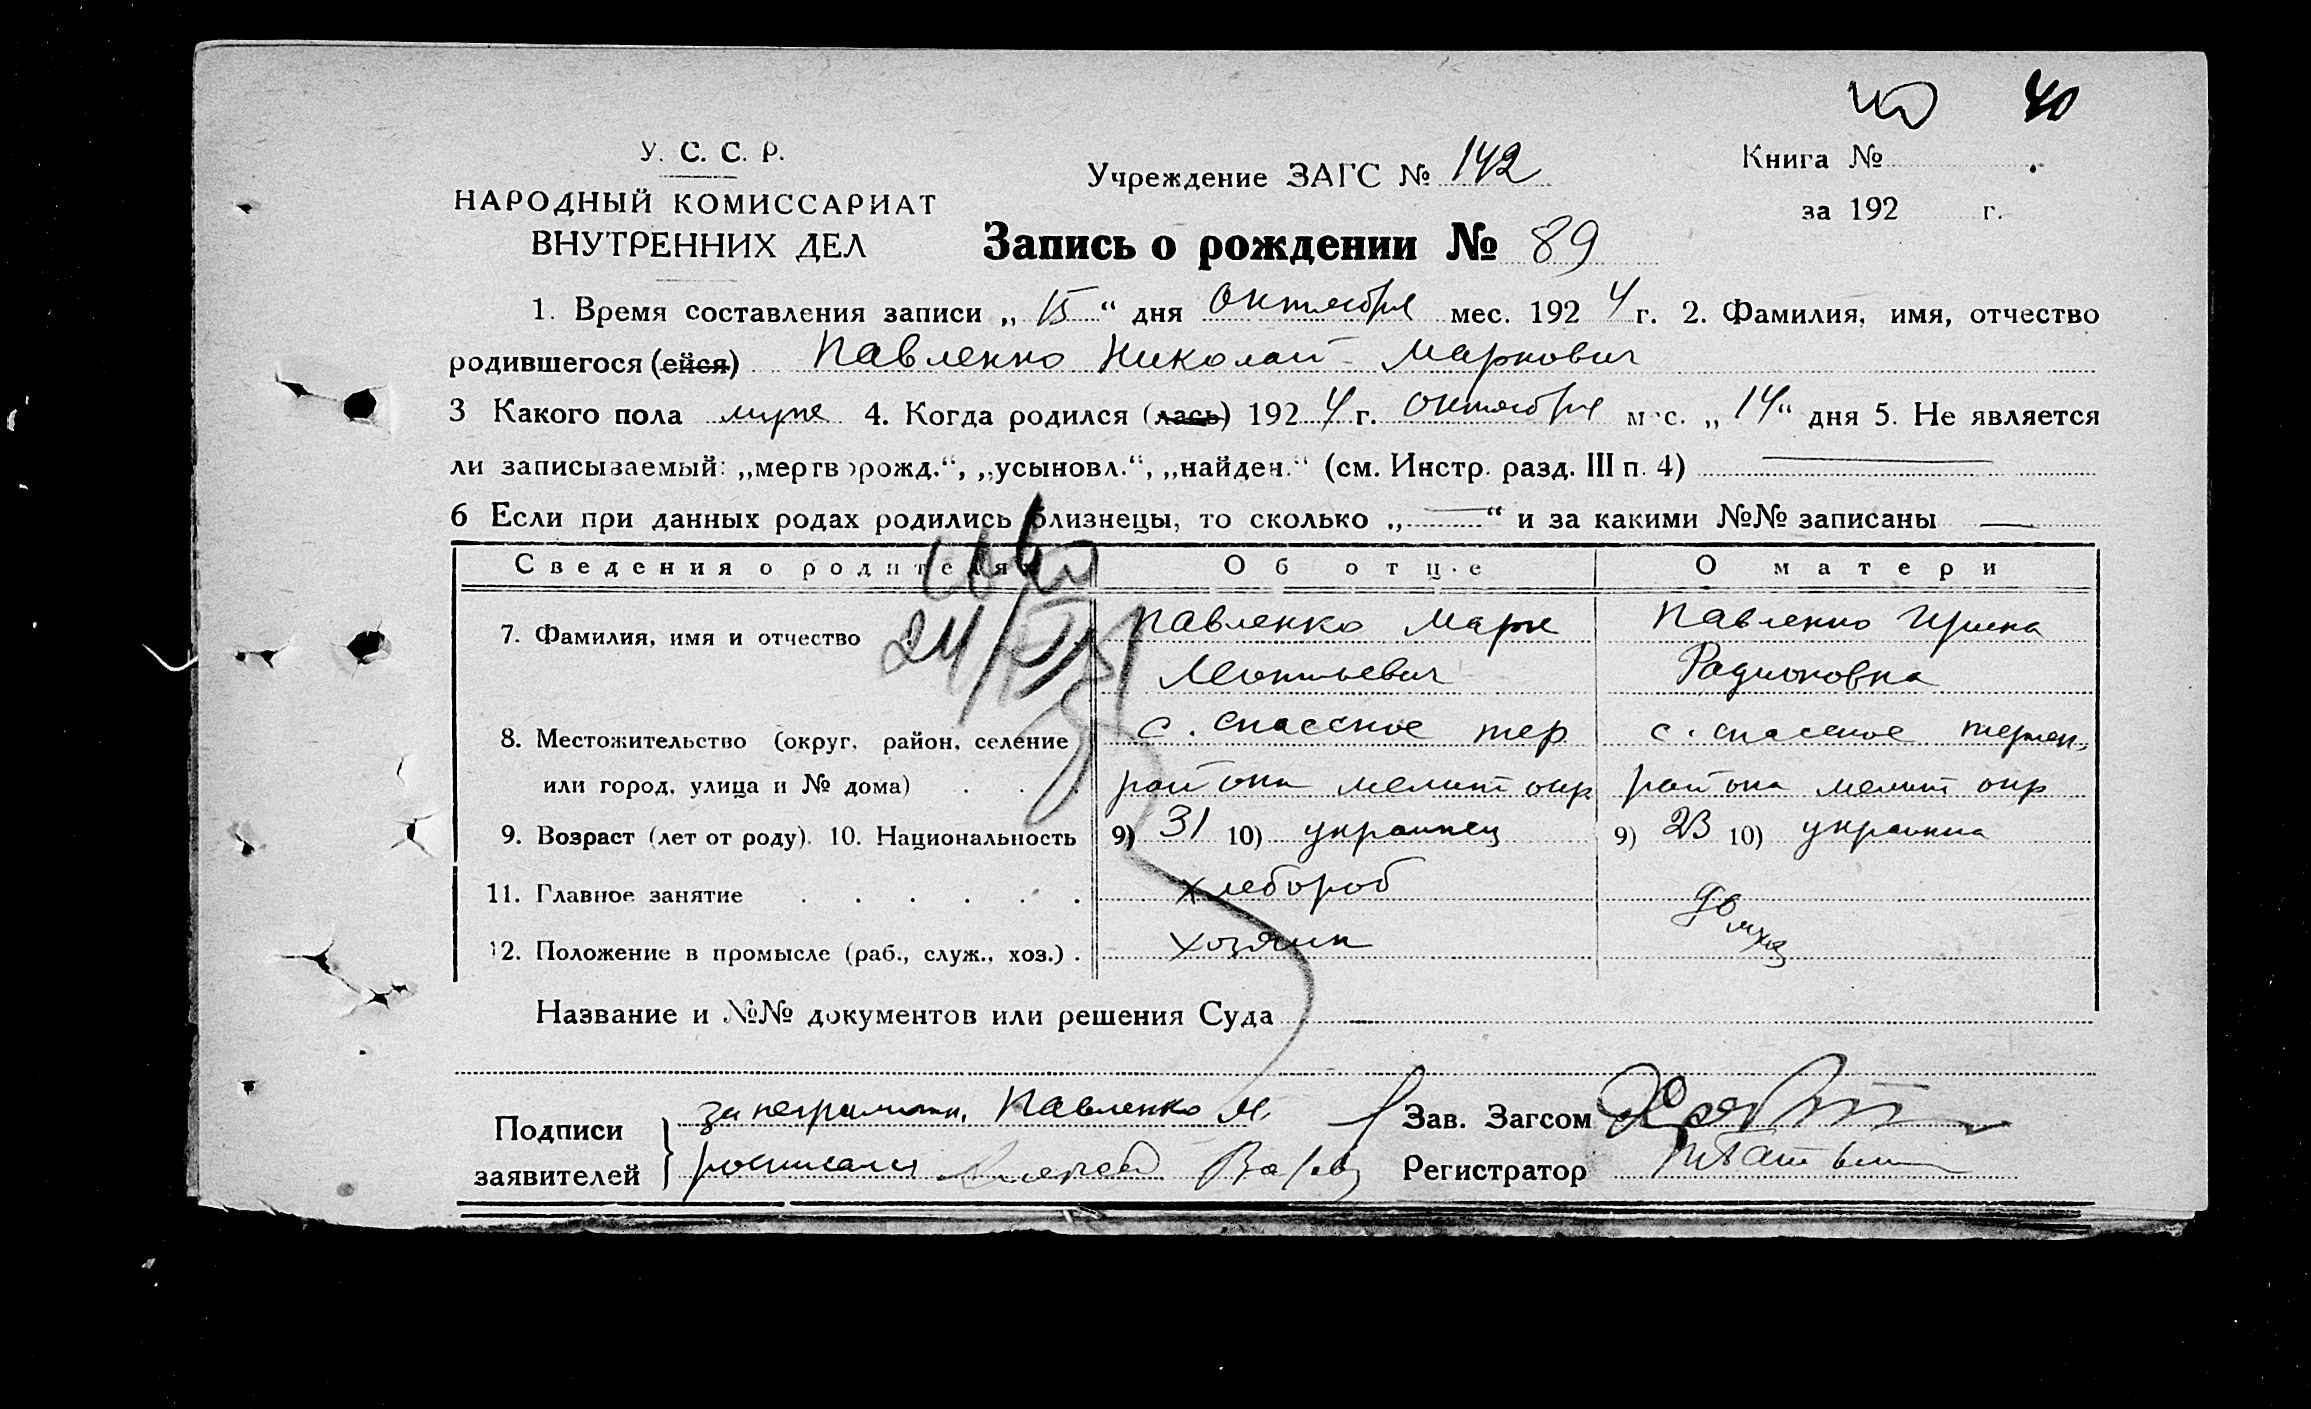 40 40
У. С. С. Р.
НАРОДНЫЙ КОМИССАРИАТ
ВНУТРЕННИХ ДЕЛ
Учреждение ЗАГС № 142
Книга №
за 192 г.
Запись о рождении № 89
1. Время составления записи „ 15 “ дня Октября мес. 192 4 г. 2. Фамилия, имя, отчество
родившегося (ейся) Павленко Николай Маркович
3 Какого пола муж 4. Когда родился (лась) 192 4 г. Октября мес. „ 14 “ дня 5. Не является
ли записываемый: „мертворожд.“, „усыновл.“, „найден.“ (см. Инстр. разд. III п. 4) —
6 Если при данных родах родились близнецы, то сколько „ — “ и за какими №№ записаны —
Сведения о родителях Об отце О матери
7. Фамилия, имя и отчество Павленко Марк Павленко Ирина
Леонтьевич Радионовна
8. Местожительство (округ, район, селение с. Спасское тер с. Спасское терпен.
или город, улица и № дома) . . . района мелит окр района мелит окр
9. Возраст (лет от роду). 10. Национальность 9) 31 10) украинец 9) 23 10) украинка
11. Главное занятие . . . . . . хлебороб
12. Положение в промысле (раб., служ., хоз.) . хозяин домхоз
Название и №№ документов или решения Суда —
Подписи заявителей
за неграмотн. Павленко М.
росписался Алексей
Зав. Загсом
Регистратор